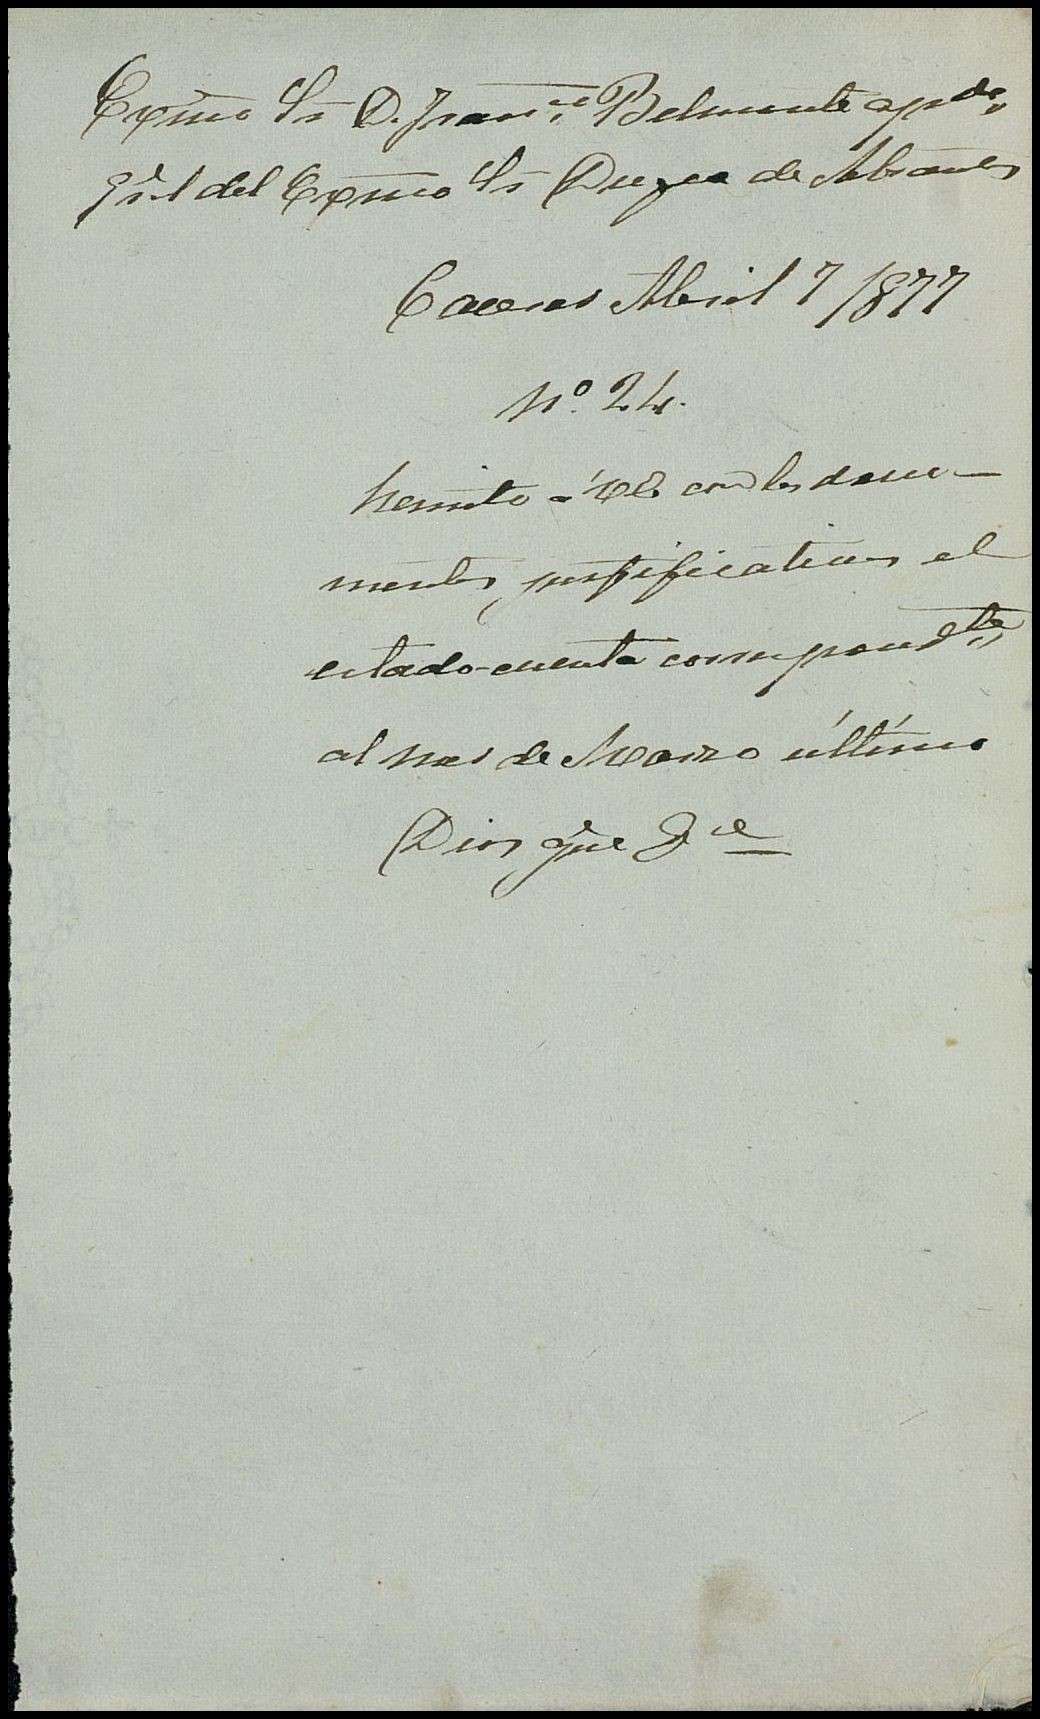 Exmo Sr D. Franco Belmonte apdo
gral del Exmo Sr Duque de Abrantes
Caceres Abril 7/1877
No. 24.
Remito á con los docu-
mentos justificativos el
estado-cuenta correspondte
al mes de Marzo último
Dios gue &a